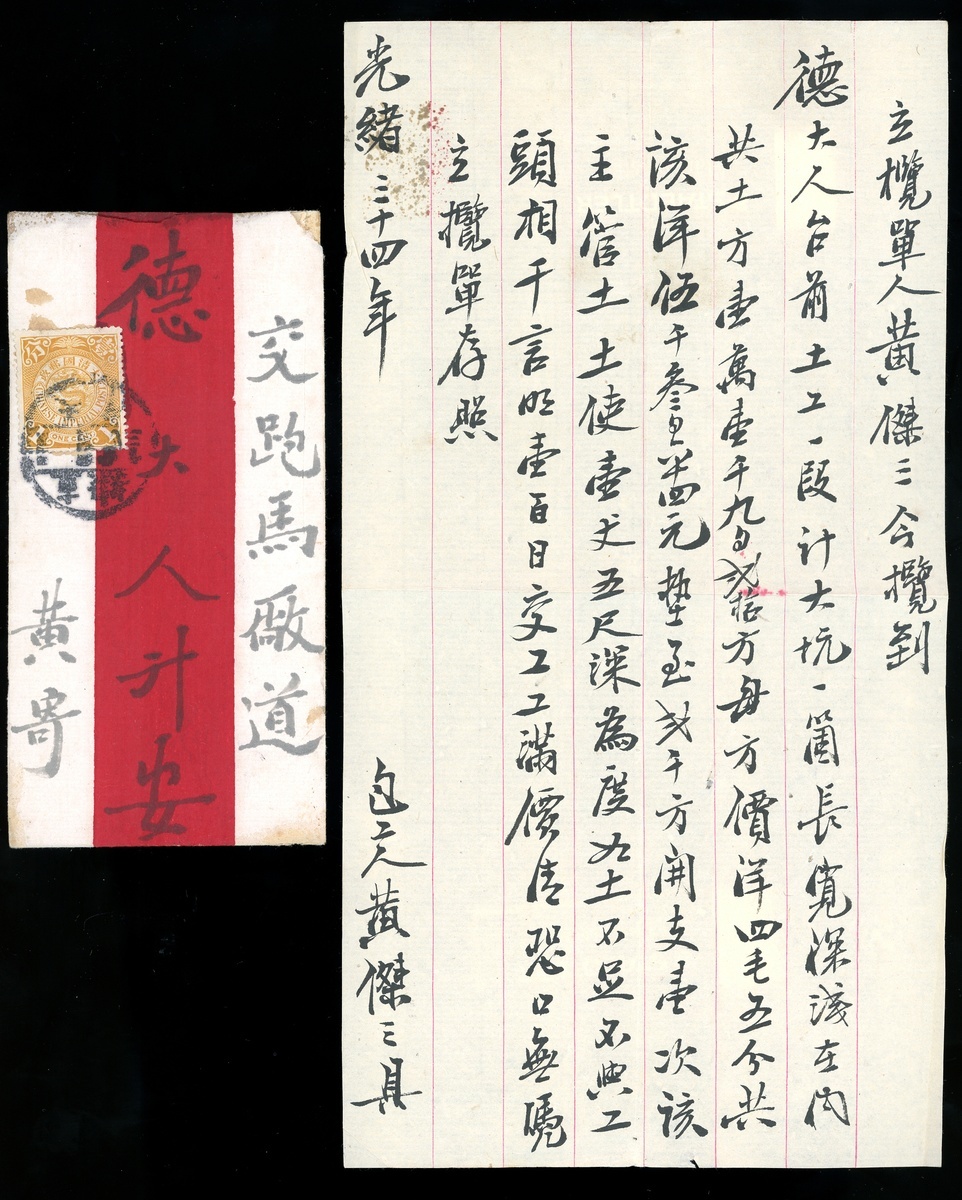 立欖單人黄傑三今欖到
德大人台前土工一段計大坑一箇長寬深淺在内
共土方壹萬壹千九百弍拾方每方價洋四毛五分共
該洋伍千叁百六十四元墊至弍千方開支壹次該
主管土土使壹丈五尺深為度如土不足不與工
頭相干言明壹百日交工工滿價清恐口無憑
立攬單存照
光緒三十四年
包工人黄傑三具
交跑馬廠道
德大人升安
黄寄
ONE CENT